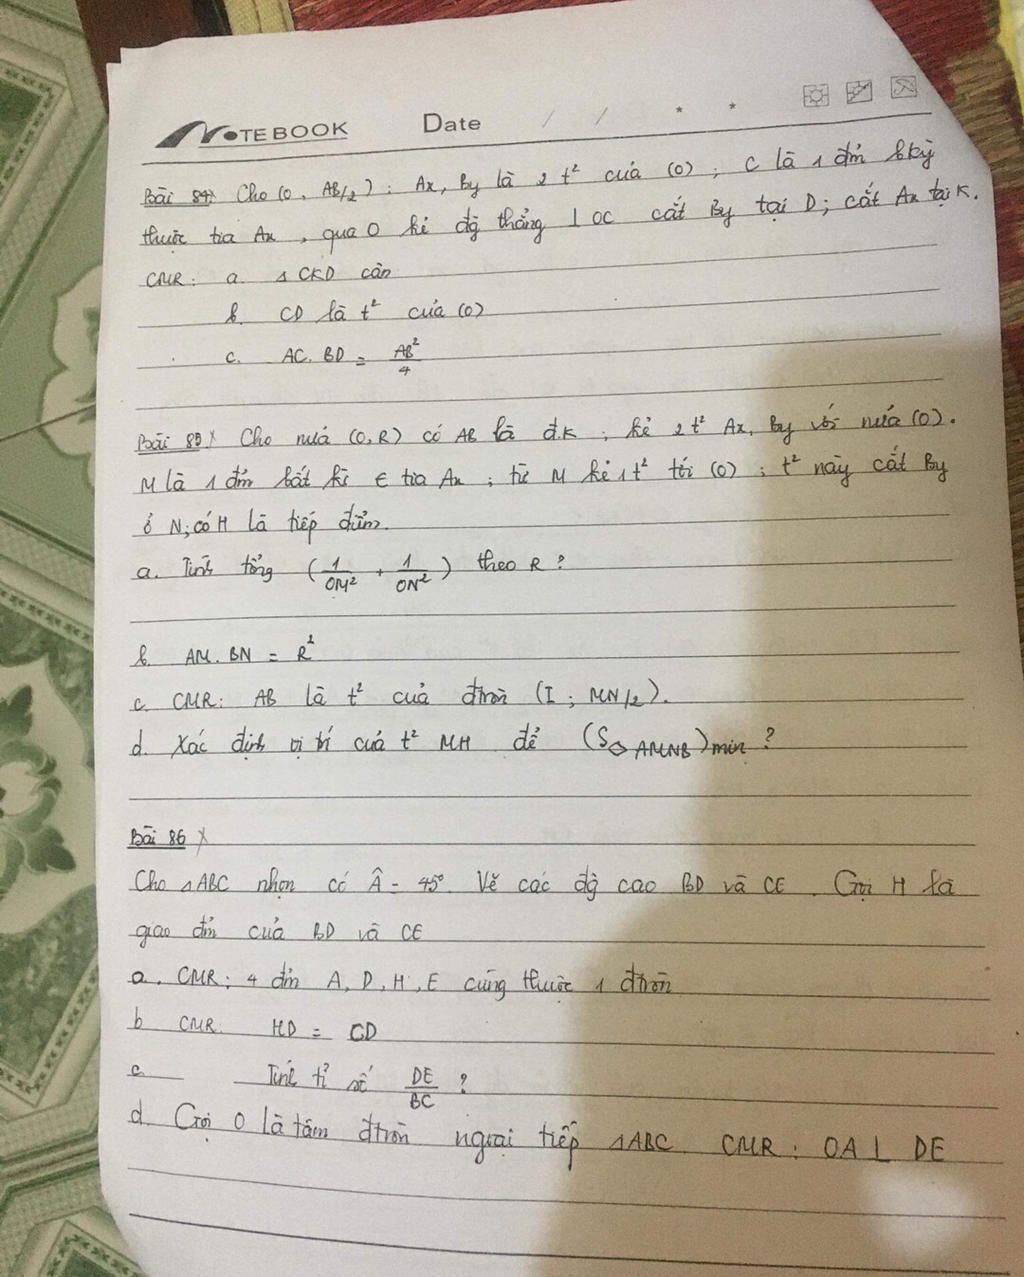 NOTEBOOK Date / / * *
Bài 84) Cho (O, AB/2) ; Ax, By là 2 t² của (O) ; C là 1 đm bkỳ
thuộc tia Ax , qua O kẻ đg thẳng ⊥ OC cắt By tại D; cắt Ax tại K.
CMR: a. ΔCKD cân
b. CD là t² của (O)
c. AC. BD = AB²/4
Bài 85) Cho nửa (O,R) có AB là đ.K ; kẻ 2 t² Ax, By với nửa (O).
M là 1 đm bất kì ∈ tia Ax ; từ M kẻ 1 t² tới (O) ; t² này cắt By
ở N; có H là tiếp điểm.
a. Tính tổng (1/OM² + 1/ON²) theo R ?
b. AM. BN = R²
c. CMR: AB là t² của đtròn (I ; MN/2).
d. Xác định vị trí của t² MH để (S◇AMNB)min ?
Bài 86
Cho ΔABC nhọn có Â = 45° Vẽ các đg cao BD và CE . Gọi H là
giao đm của BD và CE
a. CMR: 4 đm A, D, H, E cùng thuộc 1 đtròn
b CMR. HD = CD
c Tính tỉ số DE/BC ?
d. Gọi O là tâm đtròn ngoại tiếp ΔABC. CMR : OA ⊥ DE